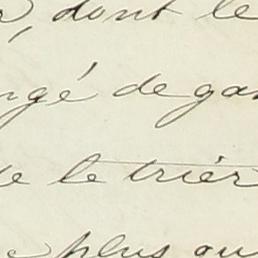 , dont le
ngé de gar
le le trier
plus ou